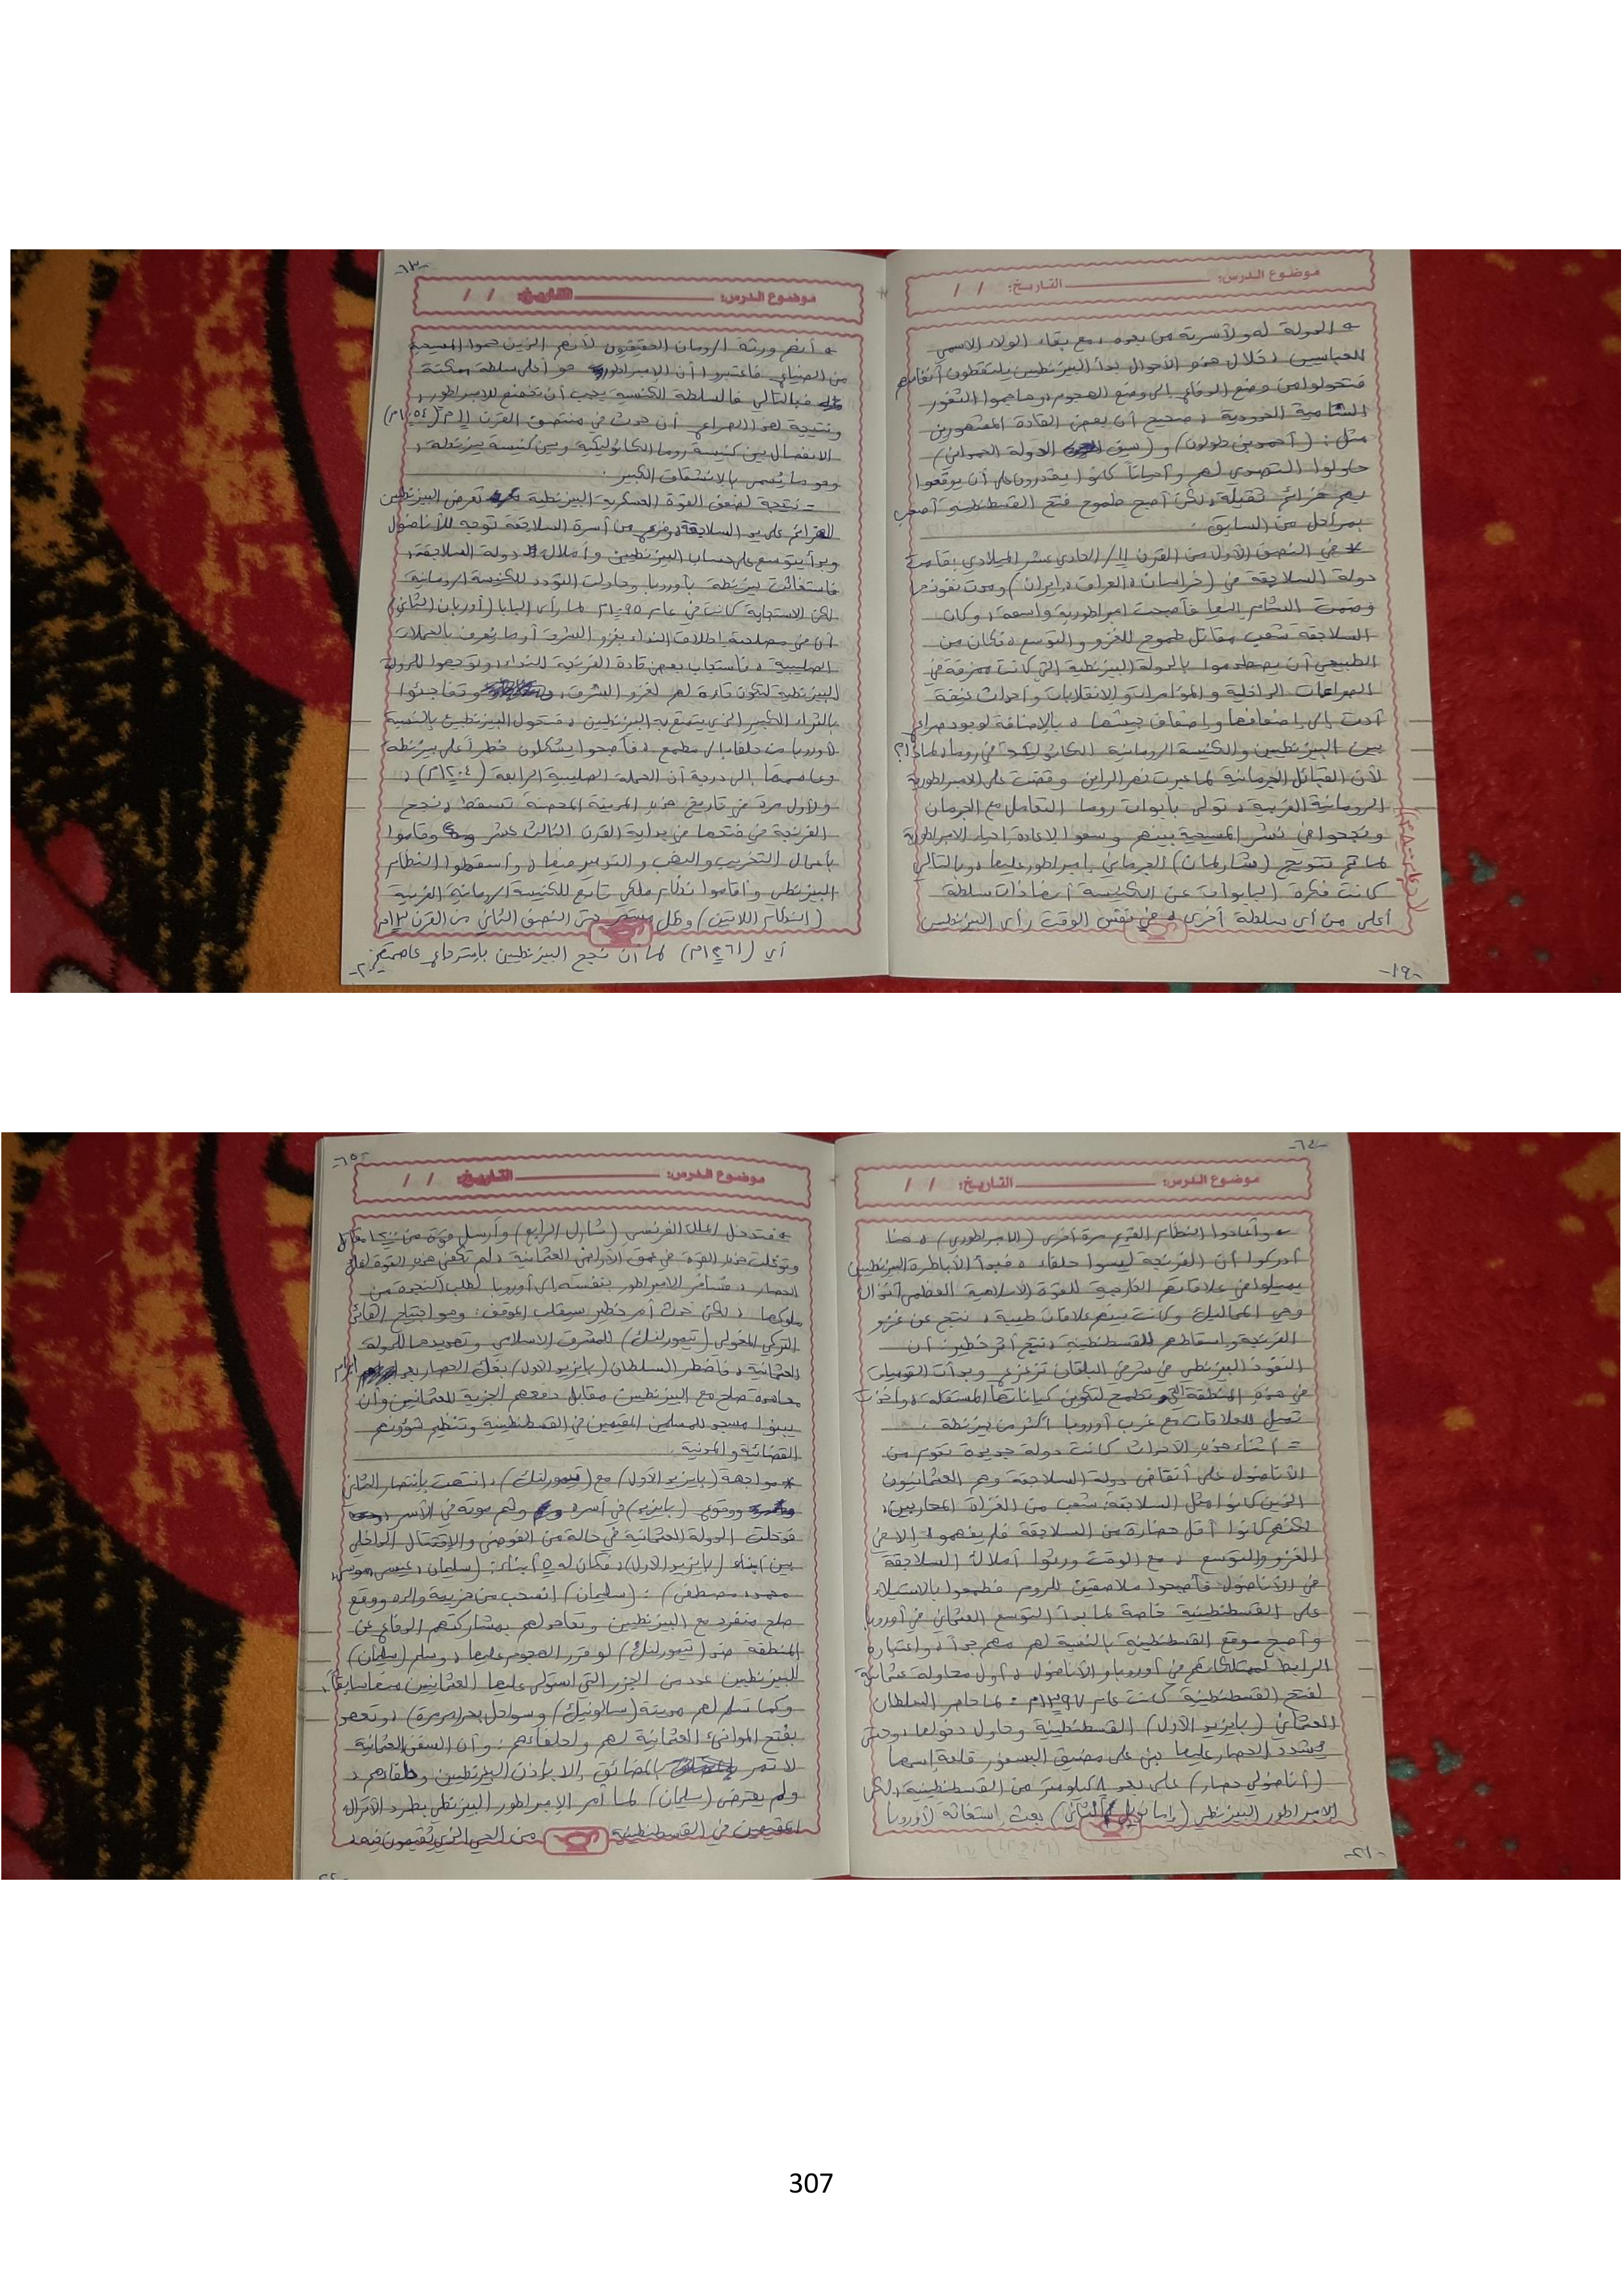 موضوع الدرس: التاريخ: / /
= الدولة له ولأسرته من بعده، مع بقاء الولاء الاسمي
للعباسيين، خلال هذه الأحوال بدأ البيزنطيين يلتقطون أنفاسهم
فتحولوا من وضع الدفاع إلى وضع الهجوم، وهاجموا الثغور
الشامية الحدودية، صحيح أن بعض القادة المشهورين
مثل: (أحمد بن طولون) و (سيف الدولة الحمداني)
حاولوا التصدي لهم وأحياناً كانوا يقدرون على أن يوقعوا
بهم هزائم ثقيلة، لكن أصبح طموح فتح القسطنطينية أصعب
بمراحل من السابق.
* في النصف الأول من القرن 11/ الحادي عشر الميلادي، قامت
دولة السلاجقة في (خراسان، العراق، إيران) ومدت نفوذها
وضمت الشام إليها فأصبحت امبراطورية واسعة، وكان
السلاجقة شعب مقاتل طموح للغزو والتوسع، فكان من
الطبيعي أن يصطدموا بالدولة البيزنطية التي كانت ممزقة في
الصراعات الداخلية والمؤامرات والانقلابات وأحداث عنيفة
أدت إلى إضعافها وإضعاف جيشها، بالإضافة لوجود صراع
بين البيزنطيين والكنيسة الرومانية الكاثوليكية في روما، لماذا؟
لأن القبائل الجرمانية لما عبرت نهر الراين وقضت على الامبراطورية
الرومانية الغربية، تولى بابوات روما التعامل مع الجرمان
ونجحوا في نشر المسيحية بينهم وسعوا لإعادة إحياء الامبراطورية
لما تم تتويج (شارلمان) الجرماني بامبراطور عليها، وبالتالي
(عام ٨٠٠م)
كانت فكرة البابوات عن الكنيسة أنها ذات سلطة
أعلى من أي سلطة أخرى، في نفس الوقت رأى البيزنطيين
-١٩-
-٦٣-
موضوع الدرس: التاريخ: / /
= أنهم ورثة الرومان الحقيقيون لأنهم الذين حموا المسيحية
من الضياع، فاعتبروا أن الامبراطور هو أعلى سلطة ممكنة
فبالتالي فالسلطة الكنسية يجب أن تخضع للامبراطور،
ونتيجة لهذا الصراع أن حدث في منتصف القرن 11م (١٠٥٤م)
الانفصال بين كنيسة روما الكاثوليكية وبين كنيسة بيزنطة،
وهو ما يُسمى بالانشقاق الكبير.
= نتيجة لضعف القوة العسكرية البيزنطية تعرض البيزنطيين
لهزائم على يد السلاجقة، وفرع من أسرة السلاجقة توجه للأناضول
وبدأ يتوسع على حساب البيزنطيين وأملاك دولة السلاجقة،
فاستغاثت بيزنطة بأوروبا وحاولت التودد للكنيسة الرومانية
لكن الاستجابة كانت في عام ١٠٩٥م لما رأى البابا (أوربان الثاني)
أن من مصلحته إطلاق النداء بغزو الشرق أو ما يُعرف بالحملات
الصليبية، فاستجاب بعض قادة الفرنجة للنداء، وتوجهوا للدولة
البيزنطية لتكون قاعدة لهم لغزو الشرق، وتفاجئوا
بالثراء الكبير الذي يتمتع به البيزنطيين، فتحول البيزنطيين بالنسبة
لأوروبا من حلفاء إلى مطمع، فأصبحوا يشكلون خطراً على بيزنطة
وعاصمتها إلى درجة أن الحملة الصليبية الرابعة (١٢٠٤م)،
ولأول مرة في تاريخ هذه المدينة المحصنة تسقط، ونجح
الفرنجة في فتحها في بداية القرن الثالث عشر وقاموا
بأعمال التخريب والنهب والتدمير فيها، وأسقطوا النظام
البيزنطي وأقاموا نظام ملكي تابع للكنيسة الرومانية الغربية
(النظام اللاتين) وظل مستمر حتى النصف الثاني من القرن ١٣م
أي (١٢٦١م) لما أن نجح البيزنطيين باسترداد عاصمتهم.
-٢٠-
-٦٤-
موضوع الدرس: التاريخ: / /
= وأعادوا النظام القديم مرة أخرى (الامبراطوري)، هنا
أدركوا أن الفرنجة ليسوا حلفاء، فبدأ الأباطرة البيزنطيين
يميلوا في علاقاتهم الخارجية للقوة الإسلامية العظمى آنذاك
وهي المماليك وكانت بينهم علاقات طيبة، نتج عن غزو
الفرنجة وإسقاطهم للقسطنطينية، نتج أثر خطير: أن
النفوذ البيزنطي في شرق البلقان تزعزع وبدأت القوميات
في هذه المنطقة التي تطمح لتكوين كياناتها المستقلة، وأخذت
تميل للعلاقات مع غرب أوروبا أكثر من بيزنطة.
= أثناء هذه الأحداث كانت دولة جديدة تقوم من
الأناضول على أنقاض دولة السلاجقة وهم العثمانيون
الذين كانوا مثل السلاجقة، شعب من الغزاة المحاربين،
لكنهم كانوا أقل حضارة من السلاجقة فلم يفهموا إلا في
الغزو والتوسع، مع الوقت ورثوا أملاك السلاجقة
في الأناضول فأصبحوا ملاصقين للروم فطمحوا بالاستيلاء
على القسطنطينية خاصة لما بدأ التوسع العثماني في أوروبا
وأصبح موقع القسطنطينية بالنسبة لهم مهم جداً، واعتباره
الرابط لممتلكاتهم في أوروبا والأناضول، أول محاولة عثمانية
لفتح القسطنطينية كانت عام ١٣٩٧م: لما حاصر السلطان
العثماني (بايزيد الأول) القسطنطينية وحاول دخولها، وحتى
يشدد الحصار عليها بنى على مضيق البسفور قلعة اسمها
(أناضولي حصار) على بعد ٨ كيلومتر من القسطنطينية، لكن
الامبراطور البيزنطي (مانويل الثاني) بعث استغاثة لأوروبا
-٢١-
-٦٥-
موضوع الدرس: التاريخ: / /
= فتدخل الملك الفرنسي (شارل الرابع) وأرسل قوة من
وتوغلت هذه القوة في عمق الأراضي العثمانية، لم تكفي هذه القوة لفك
الحصار، فسافر الامبراطور بنفسه إلى أوروبا لطلب النجدة من
ملوكها، لكن حدث أمر خطير سيقلب الموقف: وهو اجتياح القائد
التركي المغولي (تيمورلنك) للمشرق الإسلامي وتهديدها للدولة
العثمانية، فاضطر السلطان (بايزيد الأول) بفك الحصار بعد إبرام
معاهدة صلح مع البيزنطيين مقابل دفعهم الجزية للعثمانيين وأن
يبنوا مسجد للمسلمين المقيمين في القسطنطينية وتنظيم شؤونهم
القضائية والمدنية.
* مواجهة (بايزيد الأول) مع (تيمورلنك)، انتهت بانتصار الثاني
ووقوع (بايزيد) في أسره وثم موته في الأسر،
فدخلت الدولة العثمانية في حالة من الفوضى والاقتتال الداخلي
بين أبناء (بايزيد الأول)، فكان له ٥ أبناء: (سليمان، عيسى، موسى،
محمد، مصطفى): (سليمان) انسحب من هزيمة والده ووقع
صلح منفرد مع البيزنطيين وتعاهد لهم بمشاركتهم الدفاع عن
المنطقة ضد (تيمورلنك) لو قرر الهجوم عليها، وسلم (سليمان)
للبيزنطيين عدد من الجزر التي استولى عليها العثمانيين منهم سابقاً،
وكما سلم لهم مدينة (سالونيك) وسواحل بحر (مرمرة)، وتعهد
بفتح الموانئ العثمانية لهم ولحلفائهم، وأن السفن العثمانية
لا تمر بالمضائق إلا بإذن البيزنطيين وحلفائهم،
ولم يعترض (سليمان) لما أمر الامبراطور البيزنطي بطرد الأتراك
المقيمين في القسطنطينية من الحي الذي يقيمون فيه،
307